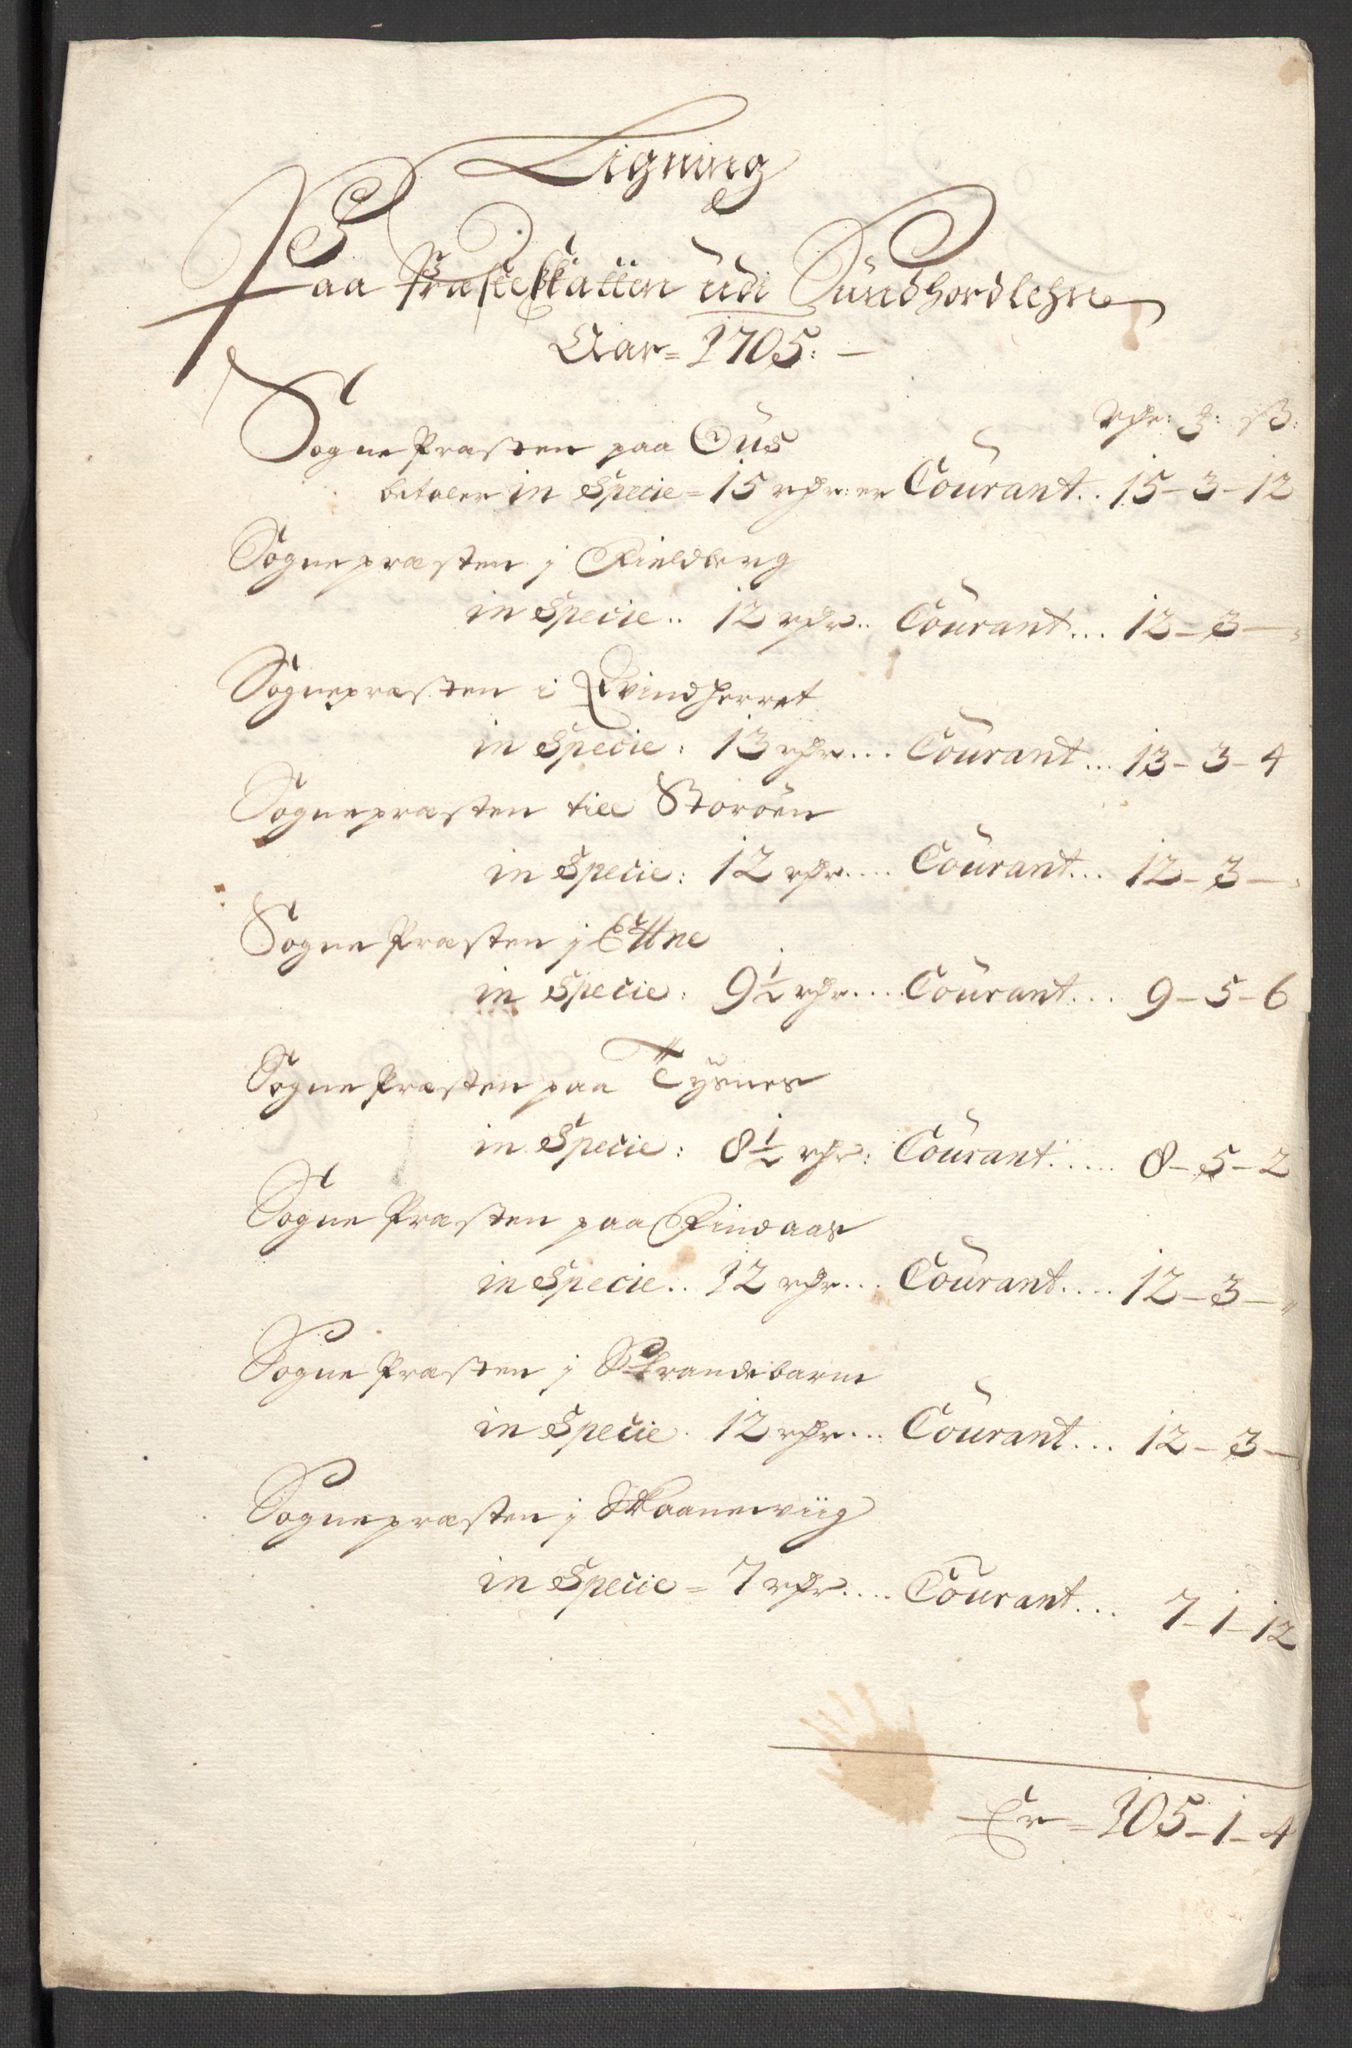 Ligning
Paa Præsteskatten udi Sundhordlehn
Aar = 1705: —
Rdr: ₰: ß:
Sogne Præsten paa Ous
betaler in Specie = 15 rdr: er Courant.. 15 – 3 – 12
Sognepræsten j Fieldberg
in Specie.. 12 rdr.. Courant... 12 – 3 — "
Sognepræsten i Qvindherret
in Specie: 13 rdr.... Courant... 13 – 3 – 4
Sognepræsten till Storöen
in Specie: 12 rdr.... Courant... 12 – 3 — "
Sogne Præsten j Ettne
in Specie: 9½ rdr.... Courant.... 9 – 5 – 6
Sogne Præsten paa Tysnes
in Specie: 8½ rdr: Courant..... 8 – 5 – 2
Sogne Præsten paa Findaas
in Specie.. 12 rdr... Courant.... 12 – 3 — "
Sogne Præsten j Strandebarm
in Specie. 12 rdr... Courant... 12 – 3 —
Sognepræsten j Skaaneviig
in Specie = 7 rdr.... Courant... 7 – 1 – 12
Er = 105 – 1 – 4